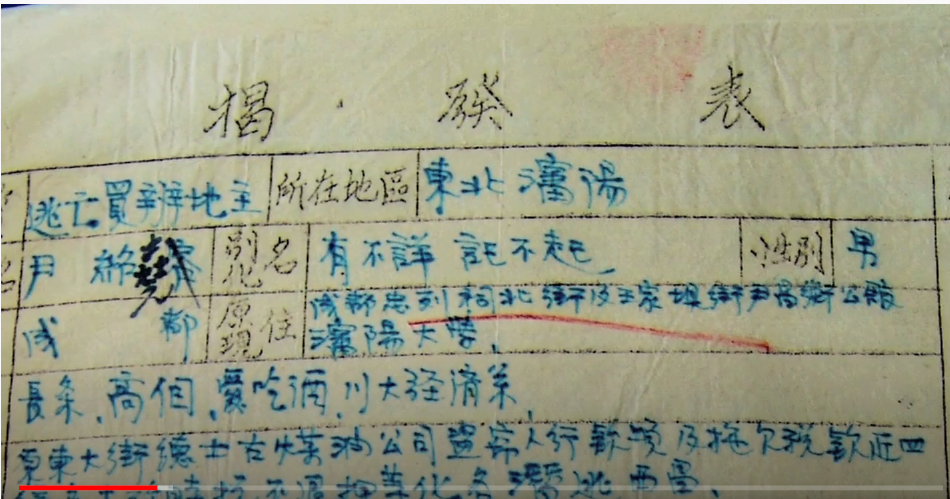 揭發表
逃亡買辦地主 所在地區 東北瀋陽
尹 別化名 有不詳 記不起 性別 男
成都 原現住 成都忠烈祠北街及王家垻街尹昌衡公館
瀋陽大學,
長条,高個,愛吃酒,川大経濟系,
東大街德士古煤油公司盗竊人行款項及拖欠稅款近四
化名潛逃